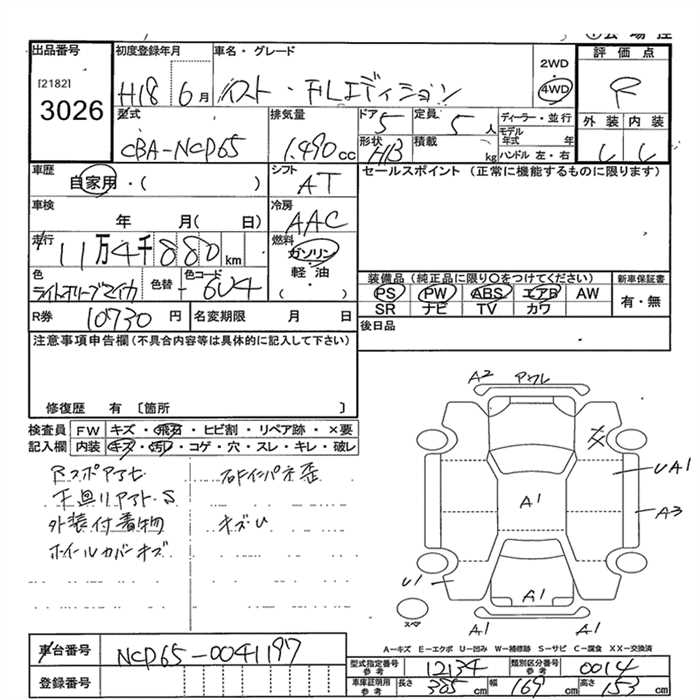 出品番号
[2182]
3026
初度登録年月
H18 6月
車名・グレード
イスト・FLエディション
2WD
4WD
評価点
R
型式
CBA-NCP65
排気量
1.490 cc
ドア
5
定員
5 人
ディーラー・並行
モデル年式 年
形状
HB
積載
kg
ハンドル 左・右
外装 内装
車歴
自家用・( )
シフト
AT
セールスポイント (正常に機能するものに限ります)
車検
年 月( 日)
冷房
AAC
走行
11万4千880 km
燃料
ガソリン
軽・油
( ・ )
色
ライトオリーブマイカ
色替
色コード
6U4
装備品(純正品に限り〇をつけてください)
新車保証書
PS PW ABS エアB AW
SR ナビ TV カワ
有・無
R券 10730 円
名変期限 月 日
後日品
注意事項申告欄(不具合内容等は具体的に記入して下さい)
修復歴 有 〔箇所 〕
検査員 FW キズ・飛石・ヒビ割・リペア跡・×要
記入欄 内装 キズ・汚れ・コゲ・穴・スレ・キレ・破レ
下廻リ
外装付着物
ホイールカバーキズ
キズU
A2 アワレ
UA1
A3
A1
U1
A1
A1 A1
スペア
A-キズ E-エクボ U-凹み W-補修跡 S-サビ C-腐食 XX-交換済
車台番号 NCP65-0041197
登録番号
型式指定番号 参考 12134
類別区分番号 参考 0014
車庫証明用 参考 長さ 385 cm 幅 169 cm 高さ 153 cm